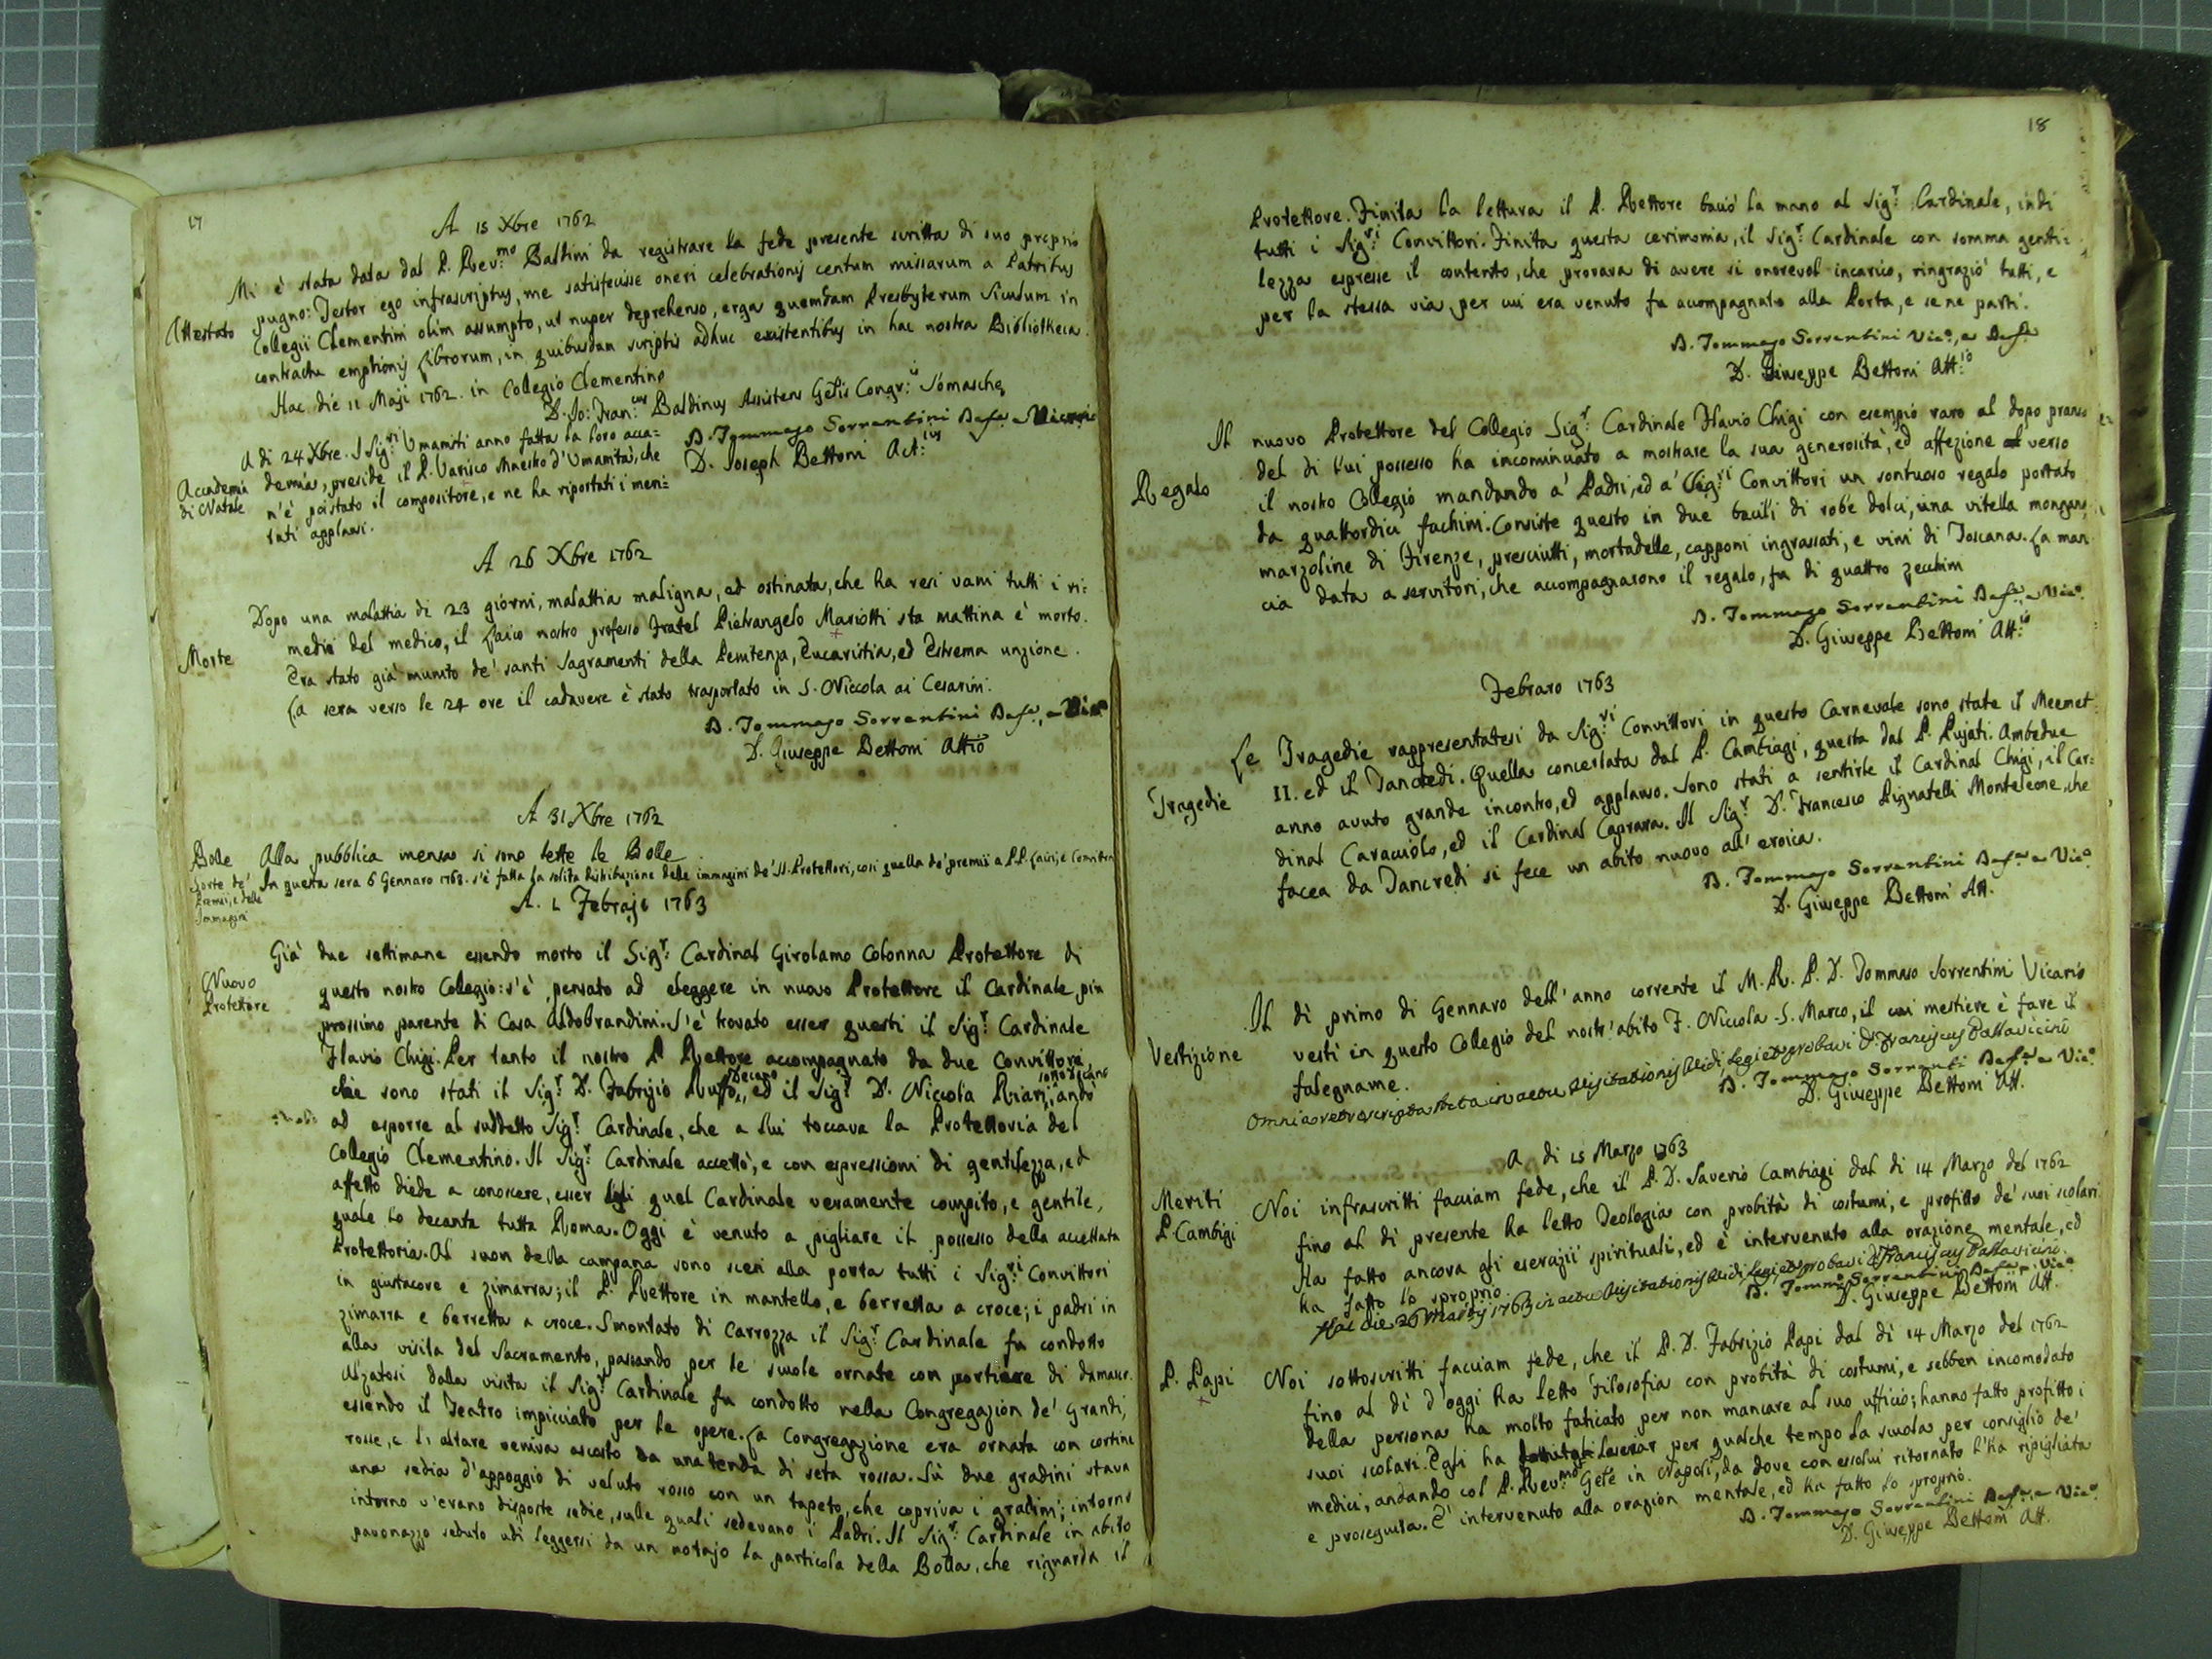 17
A 15 Xbre 1762
Mi è stata data dal P. Rev.mo Baldini da registrare la fede presente scritta di suo proprio
Attestato
pugno: Testor ego infrascriptus, me satisfecisse oneri celebrationis centum missarum a Patribus
Collegii Clementini olim assumpto, ut nuper deprehenso, erga quemdam Presbyterum Siculum in
contractu emptionis librorum, in quibusdam scriptis adhuc existentibus in hac nostra Bibliotheca.
Hac die 11 Maji 1762. in Collegio Clementino
D. Jo: Fran:cus Baldinus Assistens Glis Congr:is Somaschę
A di 24 Xbre. I Sig:ri Umanisti anno fatta la loro acca=
D. Tommaso Sorrentini Vicario
Accademia
di Natale
demia, preside il P. Varisco Maestro d'Umanita, che
D. Joseph Bettoni Act:ius
n'è poi stato il compositore, e ne ha riportati i meri=
tati applausi.
A 26 Xbre 1762
Dopo una malattia di 23 giorni, malattia maligna, ed ostinata, che ha resi vani tutti i ri=
Morte
medii del medico, il laico nostro professo Fratel Pietrangelo Mariotti sta mattina è morto.
Era stato già munito de' santi Sagramenti della Penitenza, Eucaristia, ed Estrema unzione.
La sera verso le 24 ore il cadavere è stato trasportato in S. Niccola ai Cesarini.
D. Tommaso Sorrentini Vic.o
D. Giuseppe Bettoni Att.io
A 31 Xbre 1762
Bolle
Alla pubblica mensa si sono lette le Bolle
Sorte de'
Premii, e delle
Immagini
In questa sera 6 Gennaro 1763. s'è fatta la solita distribuzione delle immagini de' SS. Protettori, così quella de' premii a PP. Laici, e Convittori
A. 1 Febrajo 1763
Nuovo
Protettore
Già due settimane essendo morto il Sig.r Cardinal Girolamo Colonna Protettore di
questo nostro Collegio: s'è pensato ad eleggere in nuovo Protettore il Cardinale più
prossimo parente di Casa Aldobrandini. S'è trovato esser questi il Sig.r Cardinale
Flavio Chigi. Per tanto il nostro P. Rettore accompagnato da due Convittori,
che sono stati il Sig.r D. Fabrizio Ruffo, Decano, ed il Sig.r D. Niccola Riari, sottodecano, andò
ad esporre al suddetto Sig.r Cardinale, che a Lui toccava la Protettoria del
Collegio Clementino. Il Sig.r Cardinale accettò, e con espressioni di gentilezza, ed
affetto diede a conoscere, esser quel Cardinale veramente compito, e gentile,
quale lo decanta tutta Roma. Oggi è venuto a pigliare il possesso della accettata
Protettoria. Al suon della campana sono scesi alla porta tutti i Sig.ri Convittori
in giustacore e zimarra; il P. Rettore in mantello, e berretta a croce; i padri in
zimarra e berretta a croce. Smontato di Carrozza il Sig.r Cardinale fu condotto
alla visita del Sacramento, passando per le scuole ornate con portiere di damasco.
Alzatosi dalla visita il Sig.r Cardinale fu condotto nella Congregazion de' grandi,
essendo il Teatro impicciato per le opere. La Congregazione era ornata con cortine
rosse, e l'altare veniva ascosto da una tenda di seta rossa. Sù due gradini stava
una sedia d'appoggio di veluto rosso con un tapeto, che copriva i gradini; intorno
intorno v'erano disposte sedie, sulle quali sedevano i Padri. Il Sig.r Cardinale in abito
pavonazzo seduto udì leggersi da un notajo la particola della Bolla, che riguarda il
18
Protettore. Finita la lettura il P. Rettore baciò la mano al Sig.r Cardinale, indi
tutti i Sig.ri Convittori. Finita questa cerimonia, il Sig.r Cardinale con somma genti=
lezza espresse il contento, che provava di avere si onorevol incarico, ringraziò tutti, e
per la stessa via, per cui era venuto fu accompagnato alla Porta, e se ne partì.
D. Tommaso Sorrentini Vic.o
D. Giuseppe Bettoni Att:io
Il nuovo Protettore del Collegio Sig.r Cardinale Flavio Chigi con esempio raro al dopo pranso
del di lui possesso ha incominciato a mostrare la sua generosità, ed affezione verso
Regalo
il nostro Collegio mandando a' Padri, ed a' Sig.ri Convittori un sontuoso regalo portato
da quattordici fachini. Consiste questo in due bacili di robe dolci, una vitella mongana,
marzoline di Firenze, presciutti, mortadelle, capponi ingrassati, e vini di Toscana. La man
cia data a servitori, che accompagnarono il regalo, fu di quattro zecchini
D. Tommaso Sorrentini Vic.o
D. Giuseppe Bettoni Att:io
Febraro 1763
Le Tragedie rappresentatesi da Sig.ri Convittori in questo Carnevale sono state il Meemet
Tragedie
II. ed il Tancredi. Quella concertata dal P. Cambiagi, questa dal P. Pujati. Ambedue
anno avuto grande incontro, ed applauso. Sono stati a sentirle il Cardinal Chigi, il Car=
dinal Caracciolo, ed il Cardinal Caprara. Il Sig.r D. Francesco Pignatelli Monteleone, che
facea da Tancredi si fece un abito nuovo all'eroica.
D. Tommaso Sorrentini Vic.o
D. Giuseppe Bettoni Att.
Il dì primo di Gennaro dell'anno corrente il M. R. P. D. Tommaso Sorrentini Vicario
Vestizione
vestì in questo Collegio del nostr'abito F. Niccola S. Marco, il cui mestiere è fare il
falegname.
Omnia retroscripta in actu Visitationis Vidi, legi et probavi D. Franciscus Pallavicini
D. Tommaso Sorrenti Vic.o
D. Giuseppe Bettoni Att.
A di 15 Marzo 1763
Meriti
P. Cambigi
Noi infrascritti facciam fede, che il P. D. Saverio Cambiagi dal di 14 Marzo del 1762
fino al di presente ha letto Teologia con probità di costumi, e profitto de' suoi scolari.
Ha fatto ancora gli esercizii spirituali, ed è intervenuto alla orazione mentale, ed
ha fatto lo sproprio.
Hac die 26 Martij 1763 in actu Visitationis Vidi, legi, et probavi D. Franciscus Pallavicini.
D. Tommaso Sorrentini Vic.o
D. Giuseppe Bettoni Att.
P. Papi
Noi sottoscritti facciam fede, che il P. D. Fabrizio Papi dal dì 14 Marzo del 1762
fino al dì d'oggi ha letto Filosofia con probità di costumi, e sebben incomodato
della persona ha molto faticato per non mancare al suo ufficio; hanno fatto profitto i
suoi scolari. Egli ha lasciar per qualche tempo la scuola per consiglio de'
medici, andando col P. Rev.mo Gele in Napoli, da dove con essolui ritornato l'ha ripigliata
e proseguita. E' intervenuto alla orazion mentale, ed ha fatto lo sproprio.
D. Tommaso Sorrentini Vic.o
D. Giuseppe Bettoni Att.